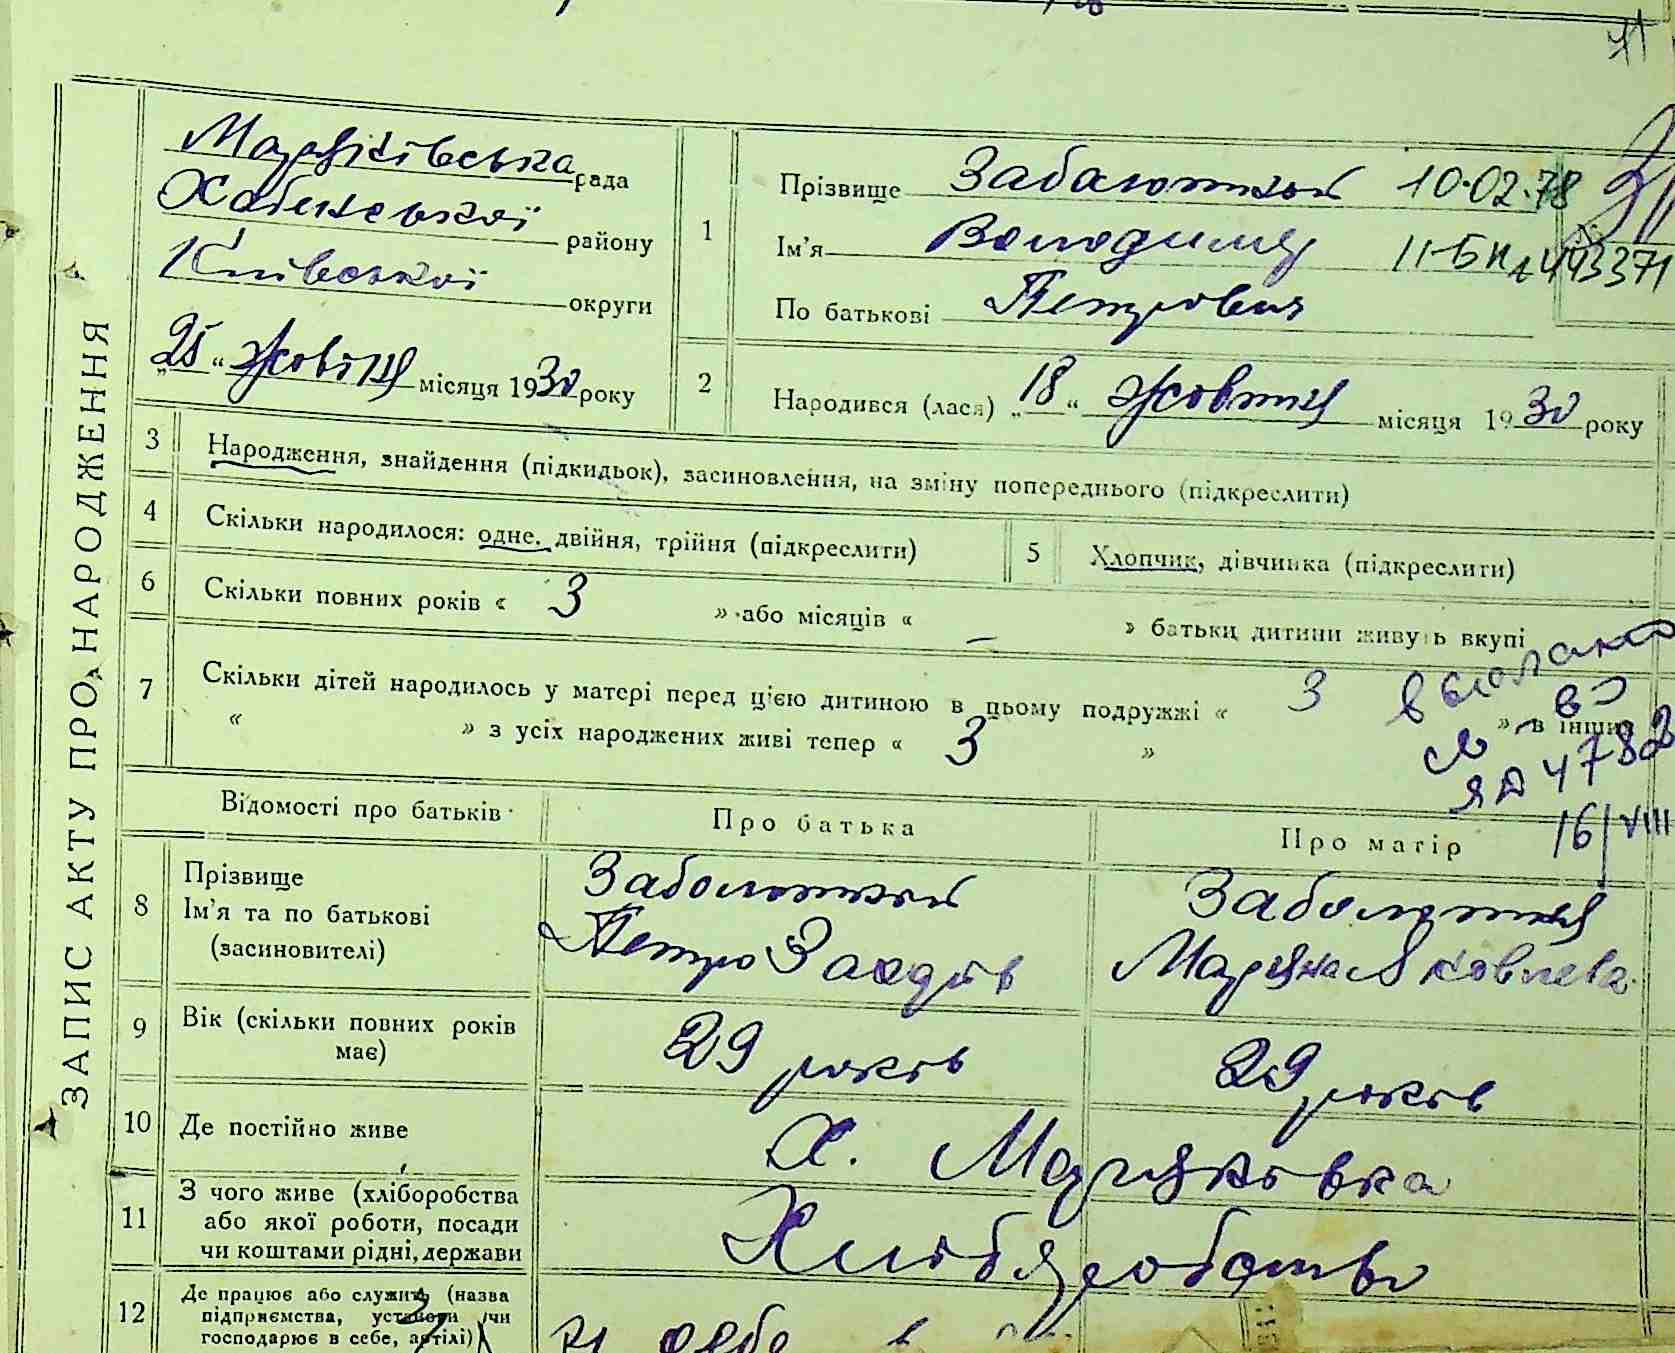 ЗАПИС АКТУ ПРО НАРОДЖЕННЯ
рада
Хабенської району
Київської округи
„25“ жовтня місяця 1930 року
1
Прізвище Заболотний 10.02.78
Ім'я Володимир II-БК 443371
По батькові Петрович
2
Народився (лася) „18“ жовтня місяця 1930 року
3
Народження, знайдення (підкидьок), засиновлення, на зміну попереднього (підкреслити)
4
Скільки народилося: одне, двійня, трійня (підкреслити)
5
Хлопчик, дівчинка (підкреслити)
6
Скільки повних років « 3 » або місяців « – » батьки дитини живуть вкупі
7
Скільки дітей народилось у матері перед цією дитиною в цьому подружжі « 3 » в інших
« » з усіх народжених живі тепер « 3 »
16/VIII
Відомості про батьків
Про батька
Про матір
8
Прізвище
Ім'я та по батькові
(засиновителі)
Заболотний
Петро
Заболотня
Мар'яна Яковлева
9
Вік (скільки повних років
має)
29 років
29 років
10
Де постійно живе
Х.
11
З чого живе (хліборобства
або якої роботи, посади
чи коштами рідні, держави
Хліборобство
12
Де працює або служить (назва
підприємства, установи чи
господарює в себе, артілі)